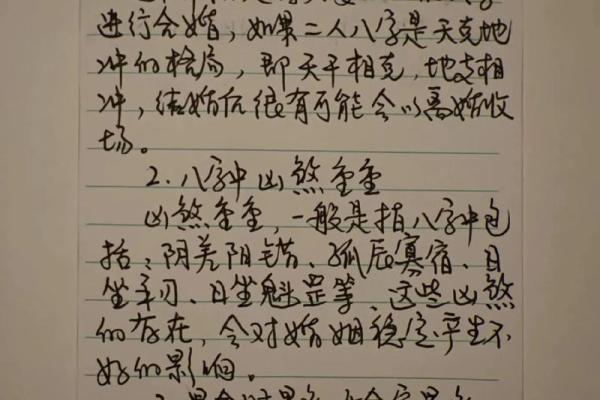 进行合婚，如果二人八字是天克地
冲的格局，即天干相克，地支相
冲，结婚后很有可能会以离婚收
场。
2.八字中凶煞重重
凶煞重重，一般是指八字中包
括：阴差阳错、孤辰寡宿、日
坐羊刃、日坐魁罡等，这些凶煞
的存在，会对婚姻稳定产生不
好的影响。